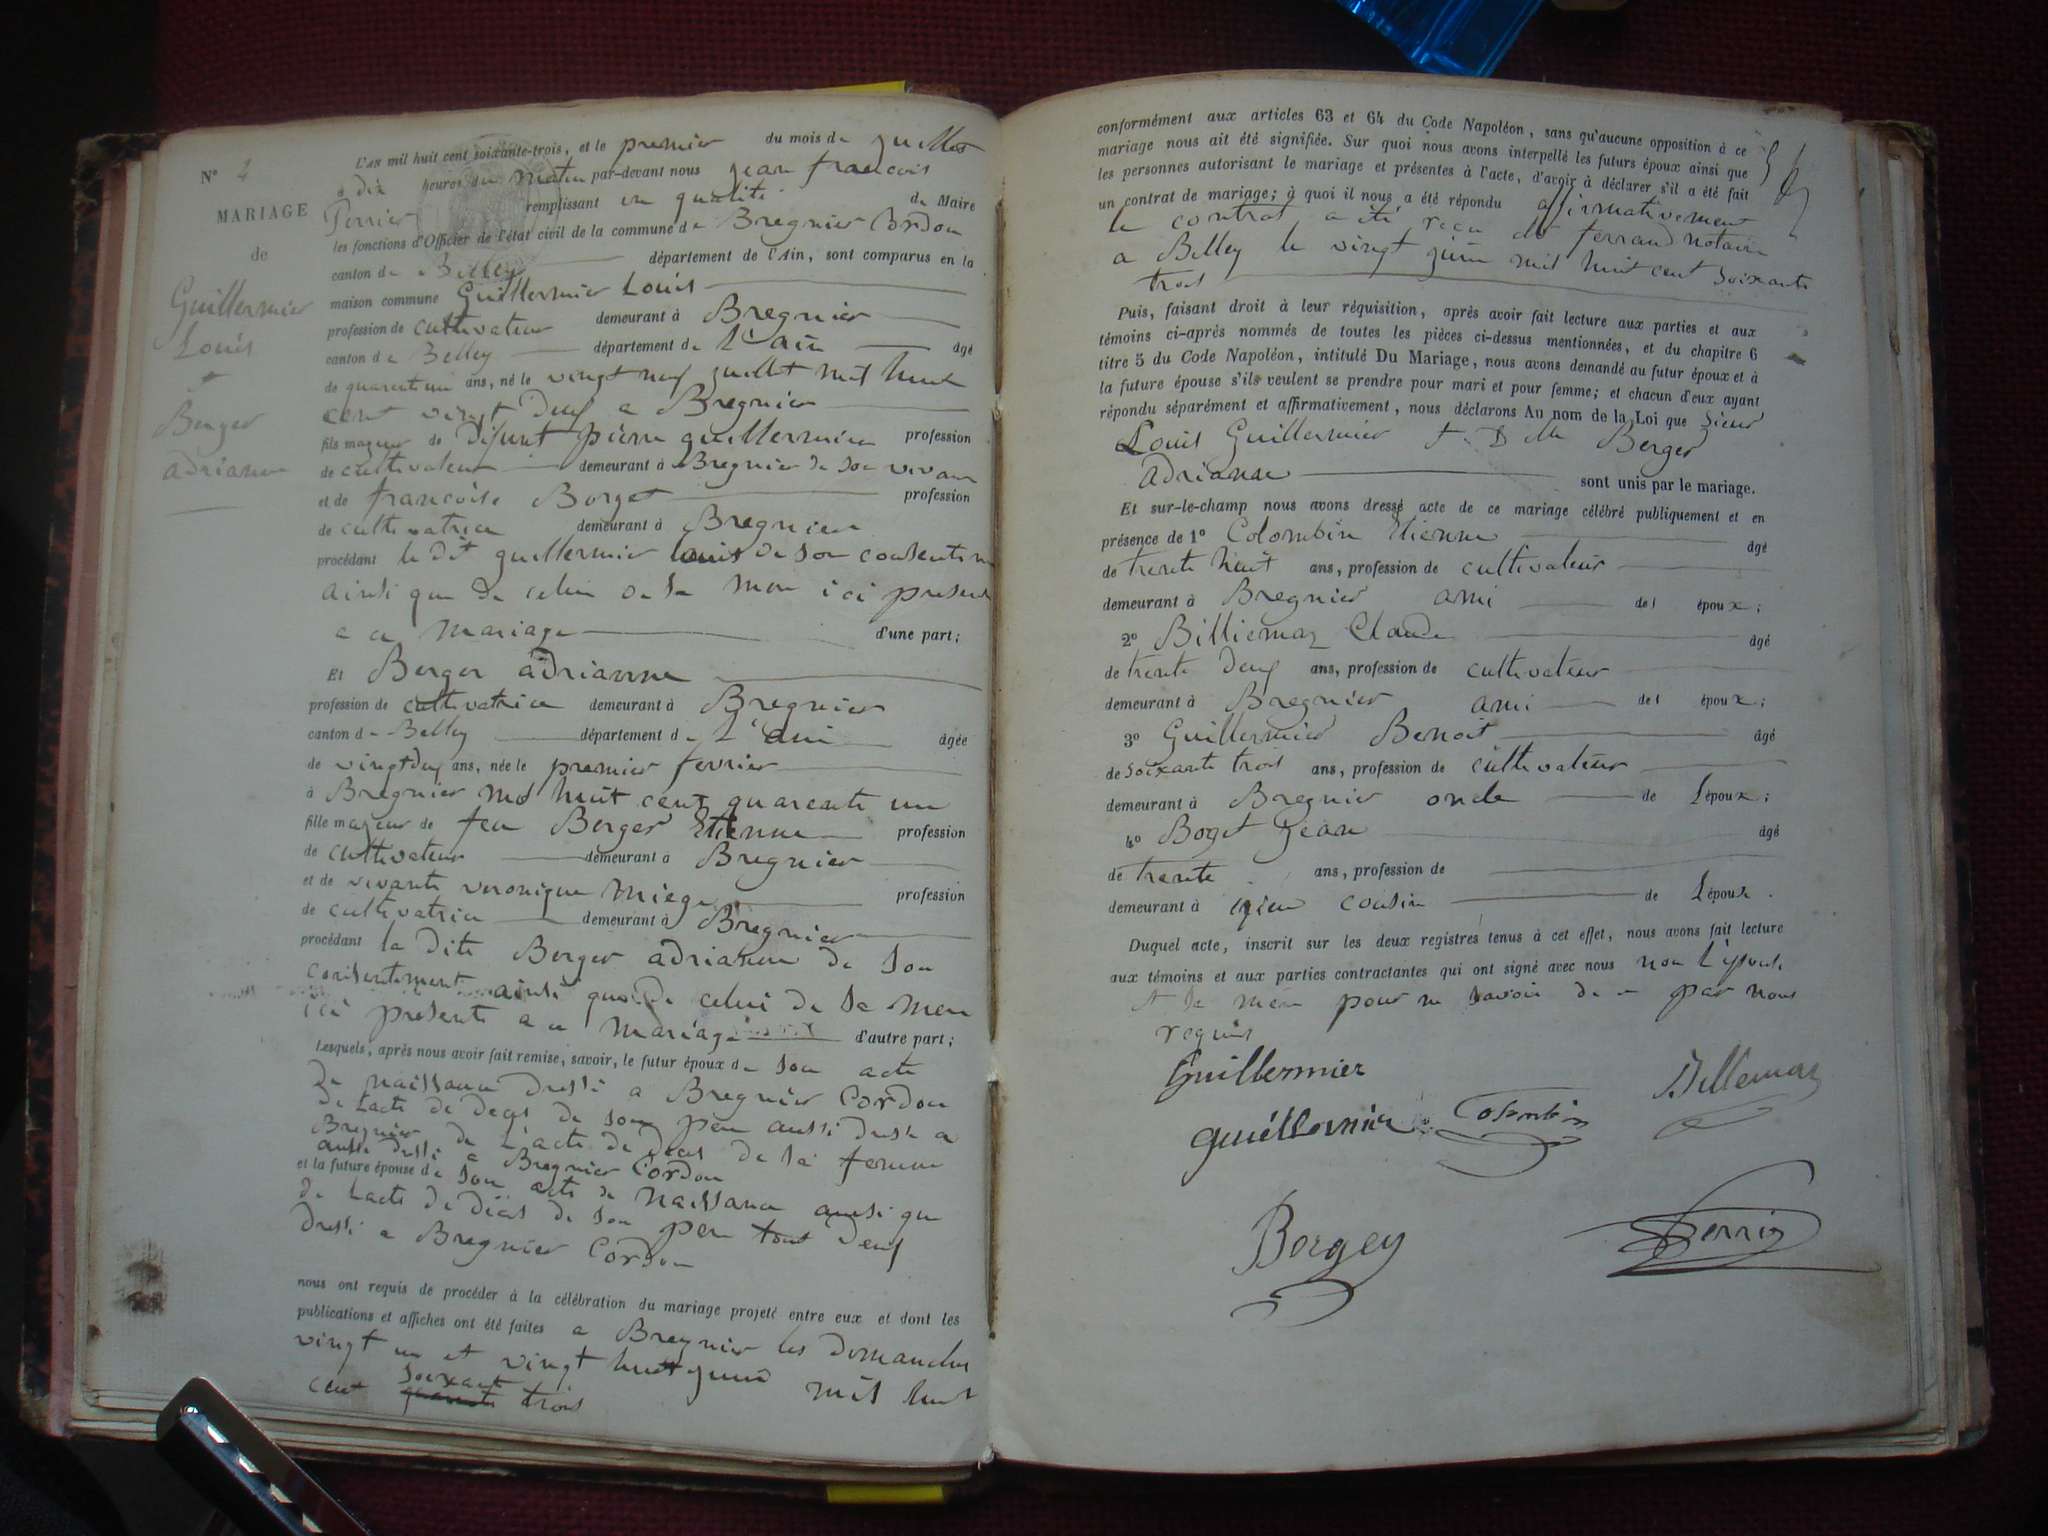 N° 2
MARIAGE
de
Guillermier
Louis
et
Berger
adrianne
L'AN mil huit cent soixante-trois, et le premier du mois de juillet
à dix heures du matin par-devant nous jean francois
Perrier remplissant en qualité de Maire
les fonctions d'Officier de l'état civil de la commune de Bregnier Cordon
canton de Belley département de l'Ain, sont comparus en la
maison commune Guillermier Louis
profession de cultivateur demeurant à Bregnier
canton de Belley département de L'ain âgé
de quarent un ans, né le vingt neuf juillet mil huit
cent vingt deux a Bregnier
fils majeur de défunt pierre guillermier profession
de cultivateur demeurant à Bregnier de son vivant
et de francoise Borget profession
de cultivatrice demeurant à Bregnier
procédant le dit guillermier louis de son consentem
ainsi que de celui de sa mere ici presente
a ce mariage d'une part;
Et Berger adrianne
profession de cultivatrice demeurant à Bregnier
canton de Belley département de L'ain âgée
de vingt deux ans, née le premier fevrier
à Bregnier mil huit cent quarente un
fille majeur de feu Berger Etienne profession
de cultivateur demeurant à Bregnier
et de vivante veronique miege profession
de cultivatrice demeurant à Bregnier
procédant la dite Berger adrianne de son
consentement ainsi que de celui de sa mere
ici presente a ce mariage d'autre part;
Lesquels, après nous avoir fait remise, savoir, le futur époux de son acte
de naissance dressé a Bregnier Cordon
de lacte de deces de son pere aussi dressé a
Bregnier de l'acte de deces de sa femme
aussi dressé a Bregnier Cordon
et la future épouse de son acte de naissance ainsi que
de lacte de décès de son pere tout deux
dressé a Bregnier Cordon
nous ont requis de procéder à la célébration du mariage projeté entre eux et dont les
publications et affiches ont été faites a Bregnier les domanches
vingt un et vingt huit juin mil huit
cent soixante trois
conformément aux articles 63 et 64 du Code Napoléon, sans qu'aucune opposition à ce
mariage nous ait été signifiée. Sur quoi nous avons interpellé les futurs époux ainsi que
les personnes autorisant le mariage et présentes à l'acte, d'avoir à déclarer s'il a été fait
un contrat de mariage; à quoi il nous a été répondu affirmativement
le contrat a été reçu de ferrand notaire
a Belley le vingt juin mil huit cent soixante
trois
Puis, faisant droit à leur réquisition, après avoir fait lecture aux parties et aux
témoins ci-après nommés de toutes les pièces ci-dessus mentionnées, et du chapitre 6
titre 5 du Code Napoléon, intitulé Du Mariage, nous avons demandé au futur époux et à
la future épouse s'ils veulent se prendre pour mari et pour femme; et chacun d'eux ayant
répondu séparément et affirmativement, nous déclarons Au nom de la Loi que Sieur
Louis Guillermier et Dlle Berger
adrianne sont unis par le mariage.
Et sur-le-champ nous avons dressé acte de ce mariage célébré publiquement et en
présence de 1° Colombin Etienne âgé
de trente huit ans, profession de cultivateur
demeurant à Bregnier ami del époux;
2° Billiemaz Claude âgé
de trente deux ans, profession de cultivateur
demeurant à Bregnier ami del époux;
3° Guillermier Benoit âgé
de soixante trois ans, profession de cultivateur
demeurant à Bregnier oncle de Lépoux;
4° Boget jean âgé
de trente ans, profession de
demeurant à izieu cousin de Lépouse.
Duquel acte, inscrit sur les deux registres tenus à cet effet, nous avons fait lecture
aux témoins et aux parties contractantes qui ont signé avec nous non L'épouse
et la mere pour ne savoir de ce par nous
requis
Guillermier
Billiemaz
guiellermier
Colombin
Borgey
Perrier